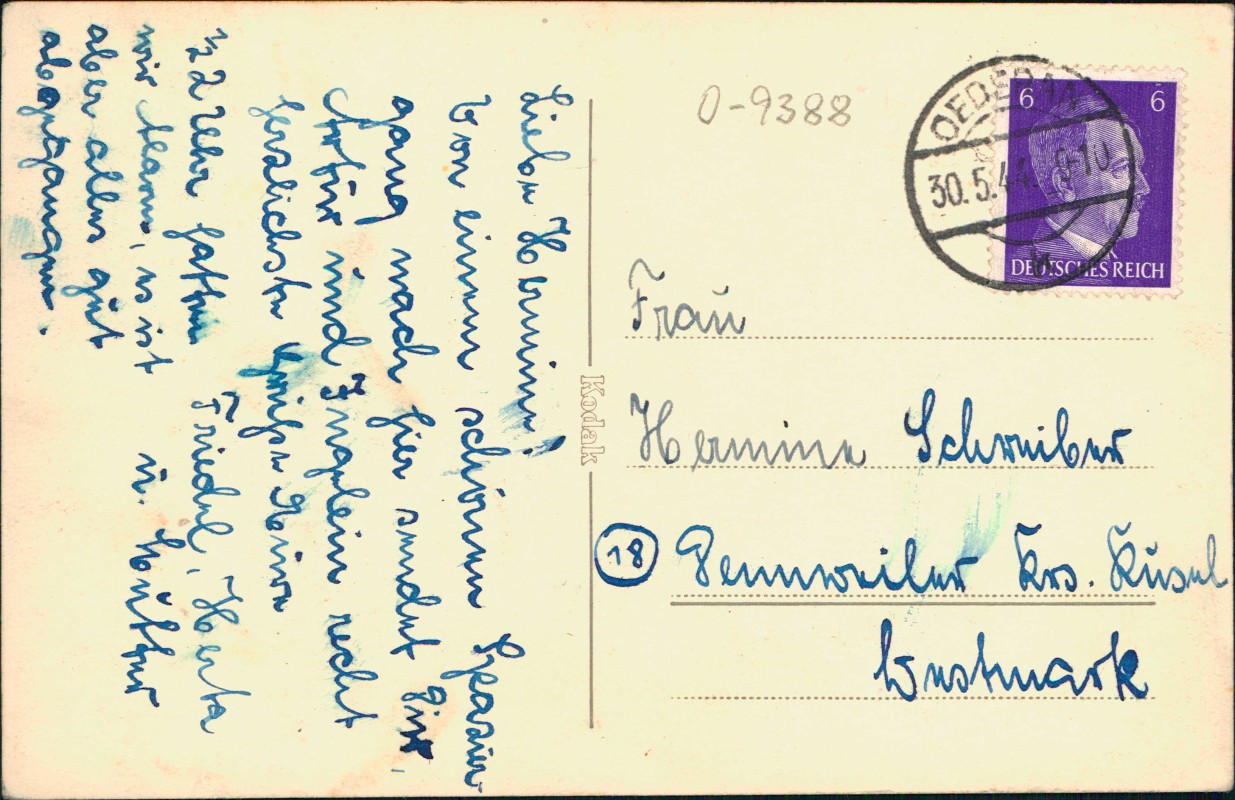 Liebe Hermine!
Von einem schönen Spazier-
gang nach hier sendet Dir,
Artur und Ingelein recht
herzlichste Grüße Deine
Friedel, Herta
u. Mutter
½ 2 Uhr hatten
wir Alarm, es ist
aber alles gut
abgegangen.
Kodak
O-9388
6 6
DEUTSCHES REICH
OEDERAN
30.5.44. 9-10
Frau
Hermine Schreiber
18 Dennweiler Krs. Kusel
Westmark